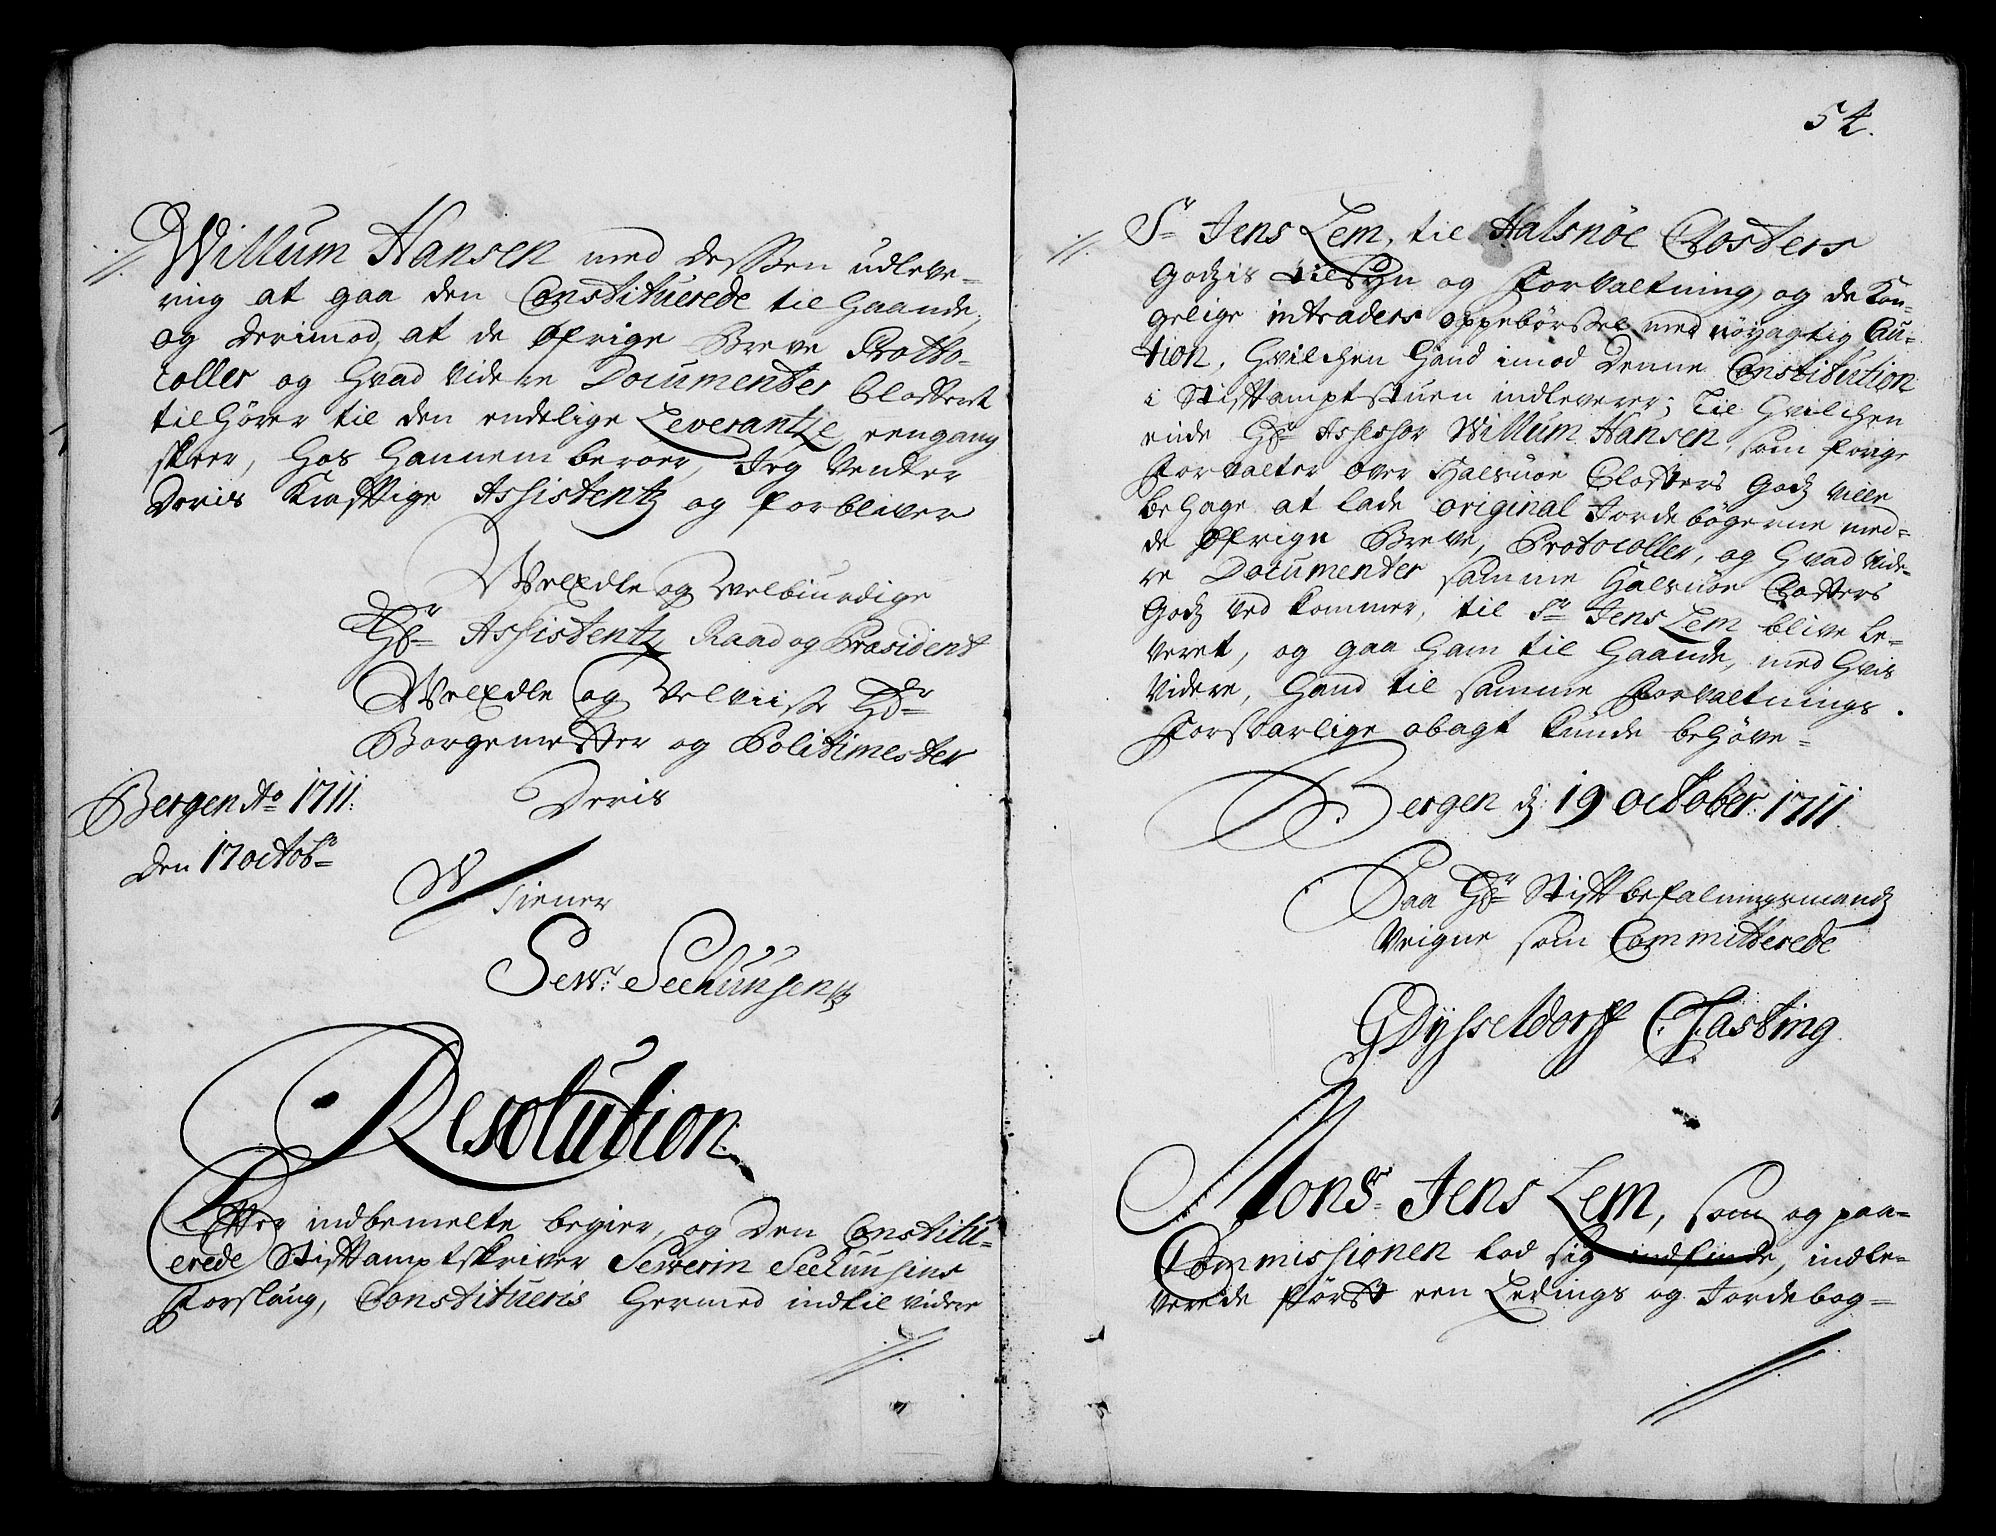 Willum Hansen med dessen udleve-
ring at gaa den Constituerede til Haande,
og derimod, at de øfrige Breve Protto-
coller og Hvad videre Documenter Closteret
tilhører til den endelige Leverantze eengang
skeer, hos hannem beroer, Jeg venter
Deris Krafftige Assistentz og forbliver
WelEdle og Velbiurdige
Hr Assistentz Raad og Præsident
WelEdle og Velviise Hr
Borgemester og Politimester
Deris
Bergen Ao 1711.
den 17 octobr
tiener
Sewr: Seehuusen
Resolution
Effter indbemelte begier, og den Constitu-
erede Stifftamptskriver Severin Seehuusens
Forslaug, Constitueris hermed indtil videre
54.
Sr Jens Lem, til Halsnöe Closters
Godzis tilsyn og Forvaltning, og de Kon-
gelige intraders oppebörssel med nöyagtig Cau-
tion, Hvilchen Hand imod denne Constitution
i Stifftamptstuen indleverer; til Hvilchen
ende Hr Assessor Willum Hansen, som forige
Forvalter over Halsnöe Closters Godz ville
behage at lade original Jordebögerne med
de øfrige Breve, Protocoller, og Hvad vide-
re Documenter samme Halsnöe Closters
Godz ved kommer, til Sr Jens Lem blive le-
veret, og gaa ham til Haande, med Hvis
videre, Hand til samme Forvaltnings
Forsvarlige obagt kunde behöve-
Bergen d: 19 october 1711
Paa Hr Stifftbefalningsmandz
Veigne som Committerede
GDysseldorff CFasting.
Monsr Jens Lem, som og paa
Commissionen lod sig indfinde, indle-
verede först een Ledings og Jordebog-